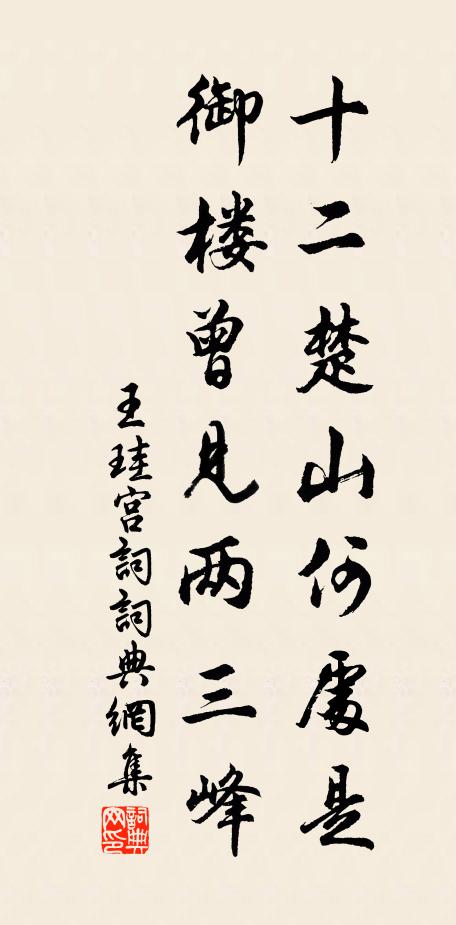 十二楚山何處是
御楼曾見两三峰
王珪宫詞詞典網集
詞典
网印